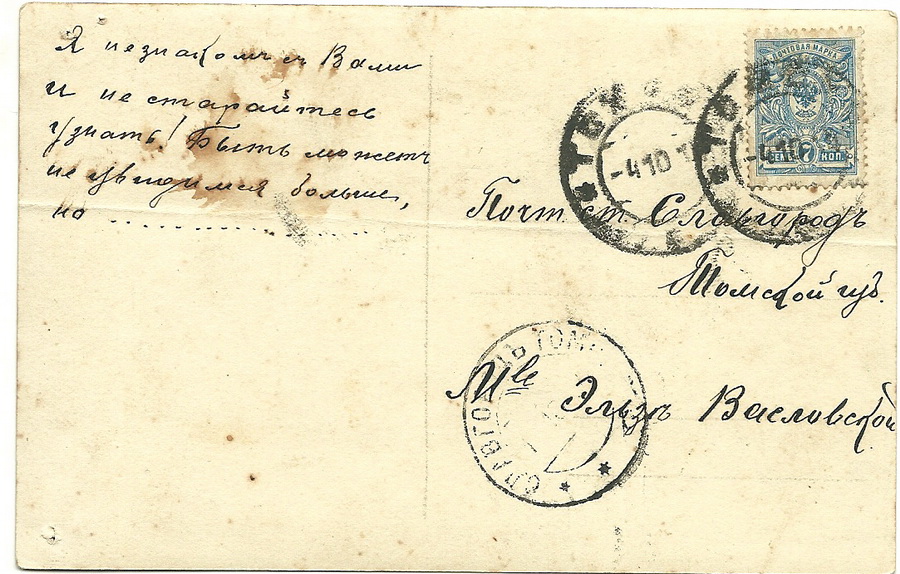 Я незнакомъ съ Вами
и не старайтесь
узнать! Быть можетъ
не увидимся больше,
но ................
ПОЧТОВАЯ МАРКА
7 КОП.
-4 10 1
-4 10
Почт. ст. Славгородъ
Томской губ.
Mlle Эльзѣ Васловской